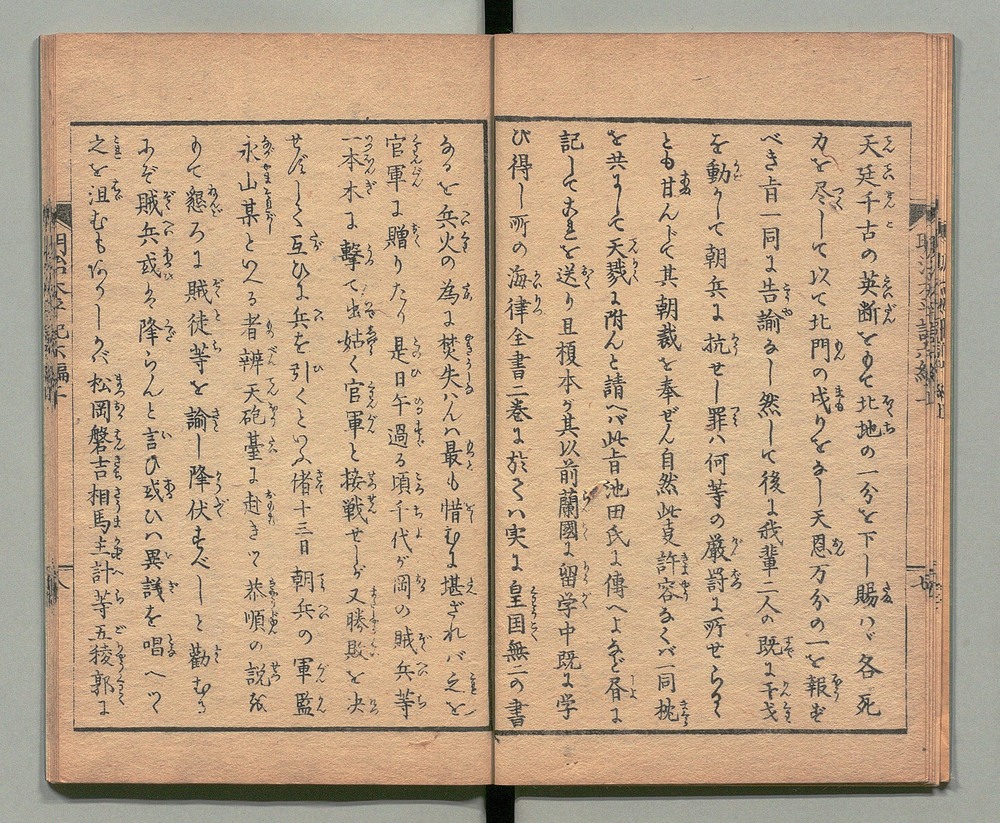 天廷千古の英断をもて北地の一分を下し賜ハヾ各死
力を尽して以て北門の戍りをなし天恩万分の一を報ず
べき旨一同に告諭なし然して後に我輩二人の既に干戈
を動かして朝兵に抗せし罪ハ何等の厳罰に所せらるゝ
とも甘んじて其朝裁を奉ぜん自然此㕝許容なくバ一同枕
を共にして天戮に附んと請へバ此旨池田氏に傳へよなど昼に
記してこれを送り且榎本が其以前蘭國に留学中既に学
び得し所の海律全書二巻に於てハ実に皇国無二の書
なるを兵火の為に焚失ハんハ最も惜むに堪ざれバ之を
官軍に贈りたり是日午過る頃千代が岡の賊兵等
一本木に擊て出姑く官軍と接戦せしが又勝敗を决
せずして互ひに兵を引くといふ偖十三日朝兵の軍監
永山某といへる者辨天砲臺に赴きて恭順の説を
もて懇ろに賊徒等を諭し降伏すべしと勸むる
にぞ賊兵或ひは降らんと言ひ或ひハ異議を唱へて
之を沮むもありしが松岡磐吉相馬主計等五稜郭に
明治太平記六編十
八
七